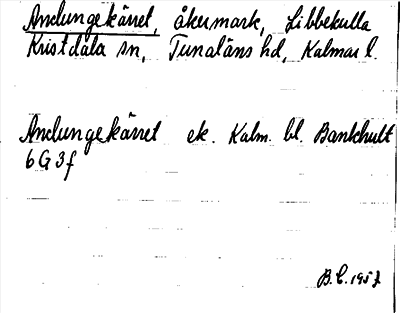 Andungekärret, åkermark, Libbekulla
Kristdala sn, Tunaläns hd, Kalmar l.
Andungekärret ek. Kalm. bl. Bankhult
6 G 3 f
B.C. 1957